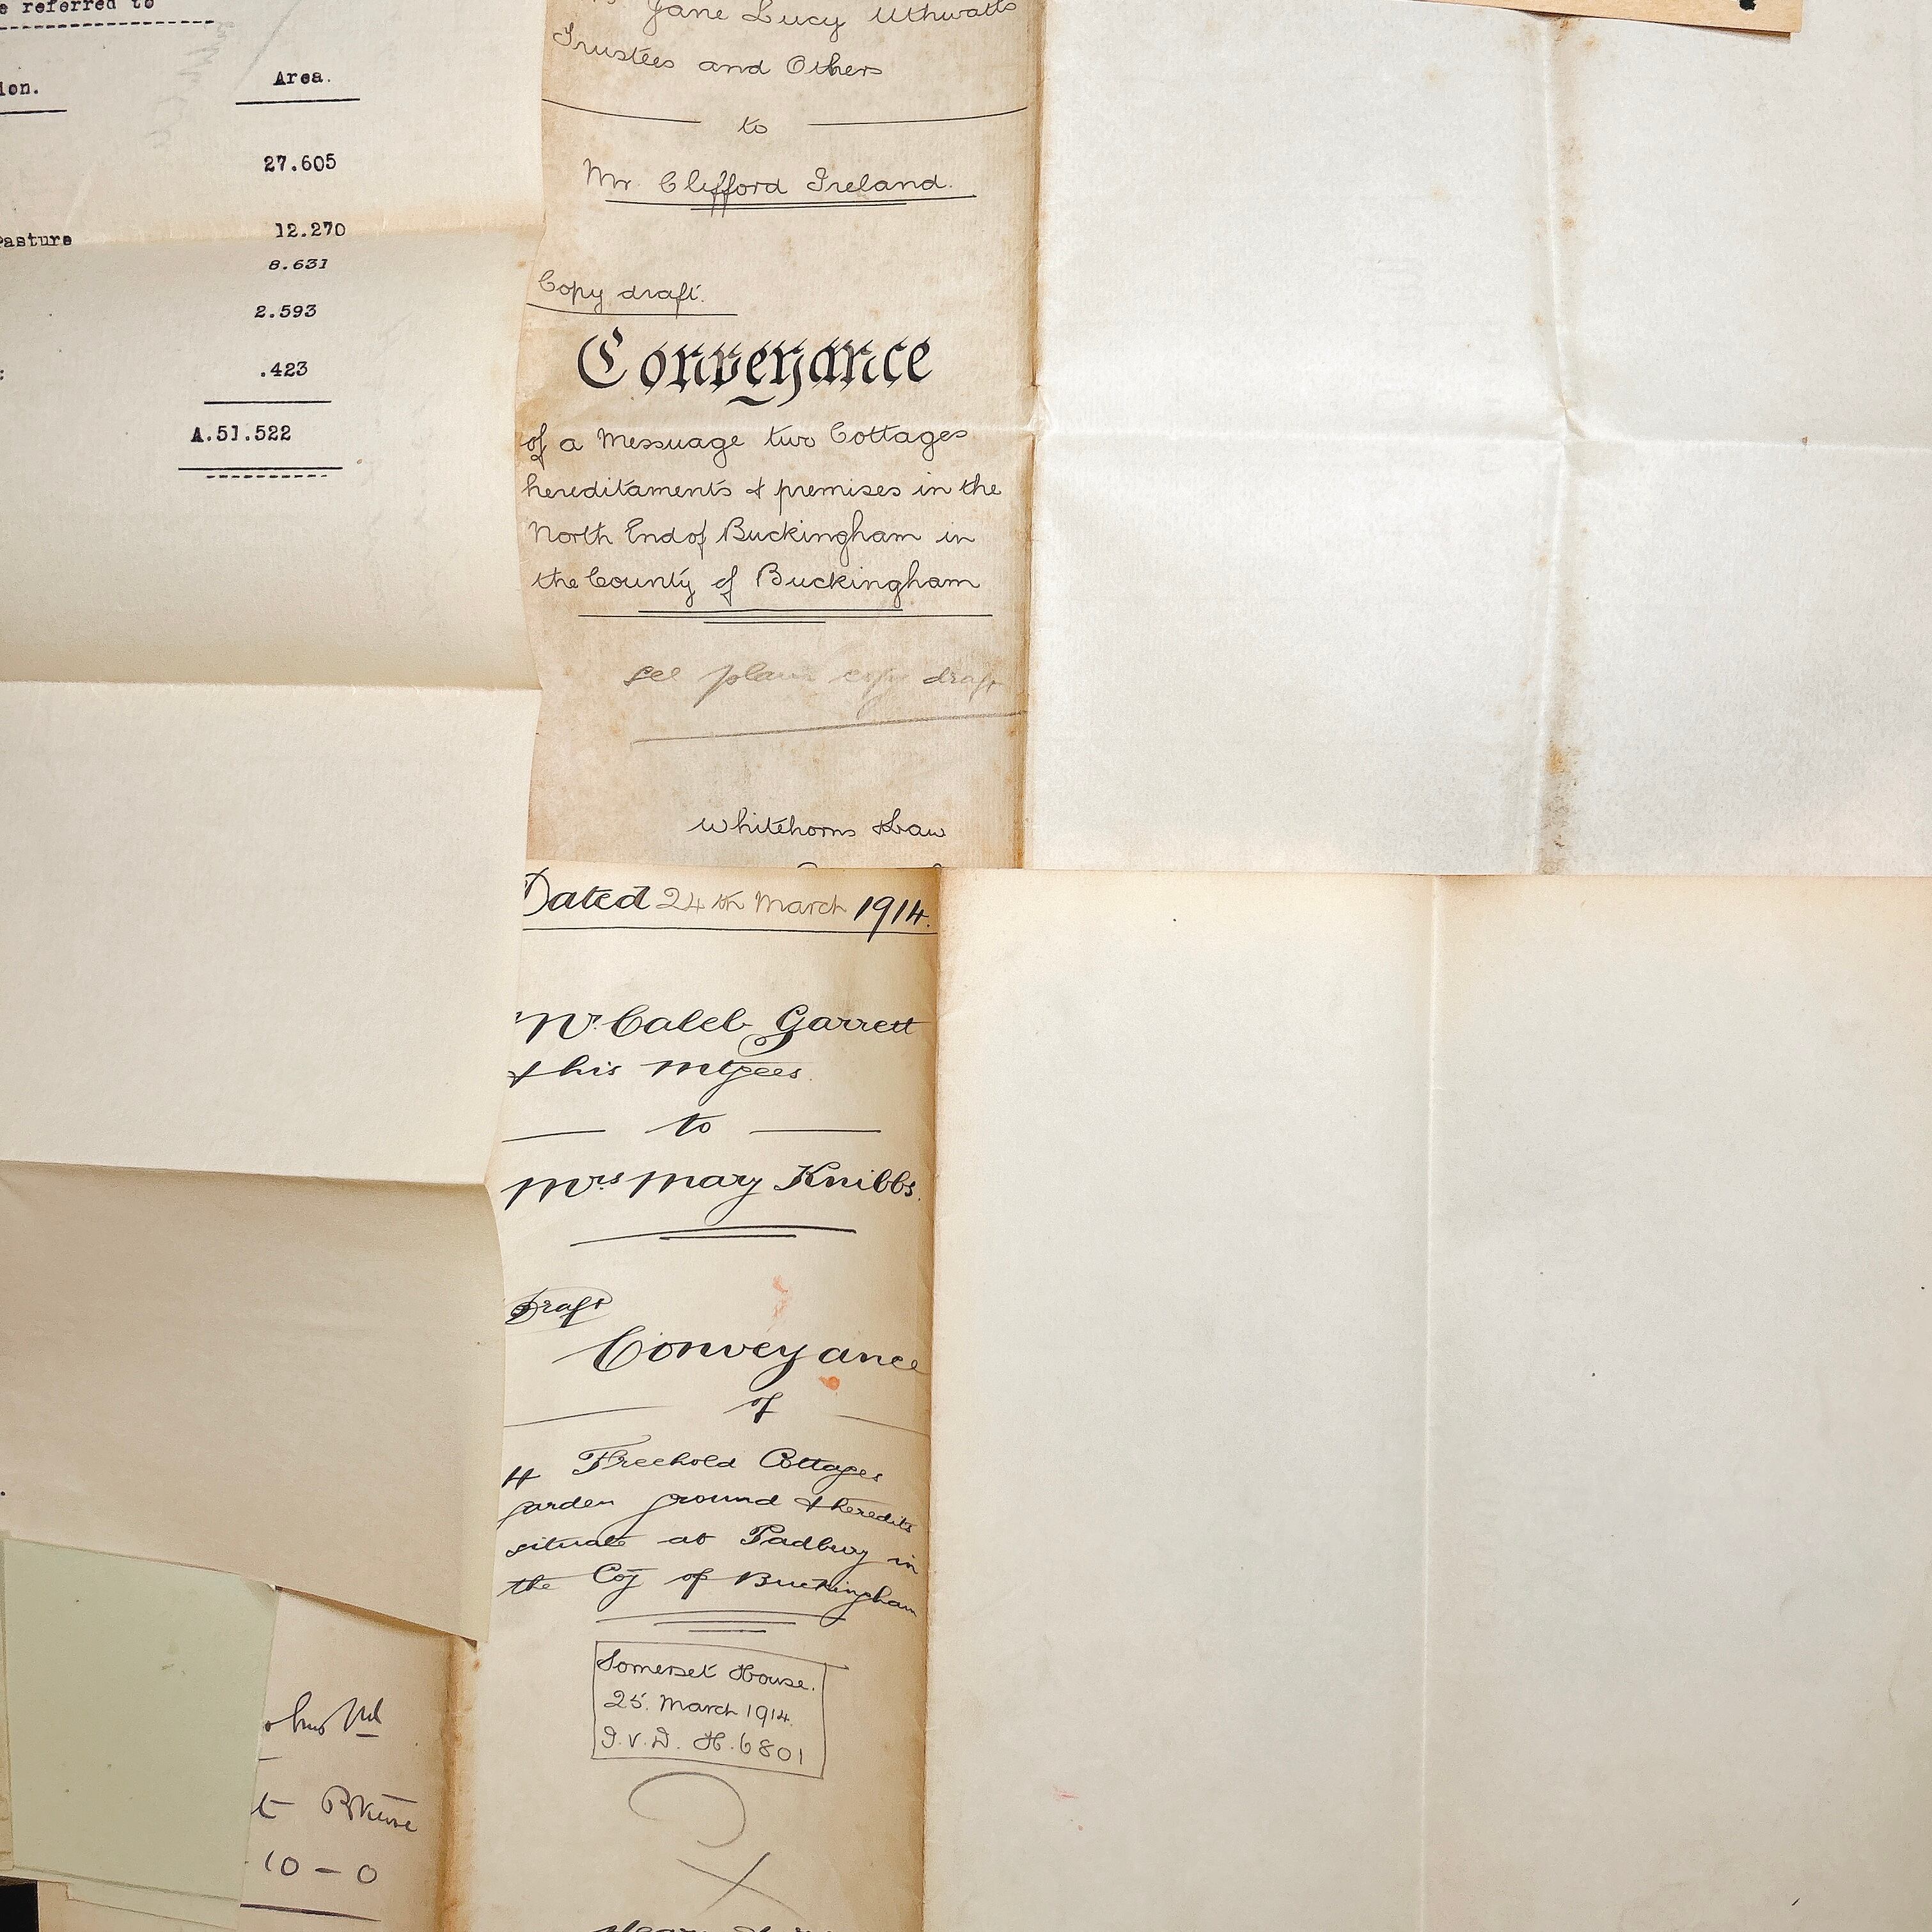 e referred to
ion.
Area.
27.605
Pasture
12.270
8.631
2.593
.423
A.51.522
Jane Lucy Uthwatts
Trustees and Others
to
Mr. Clifford Ireland.
Copy draft.
Conveyance
of a Messuage two Cottages
hereditaments & premises in the
North End of Buckingham in
the County of Buckingham
see plain copy draft
Whitehorns & Law
Dated 24th March 1914.
Mr. Caleb Garrett
& his Mtgees.
to
Mrs Mary Knibbs.
Draft
Conveyance
of
4 Freehold Cottages
garden ground & heredits
situate at Padbury in
the Coy of Buckingham
Somerset House.
25. March 1914.
I.V.D. H.6801
10 - 0